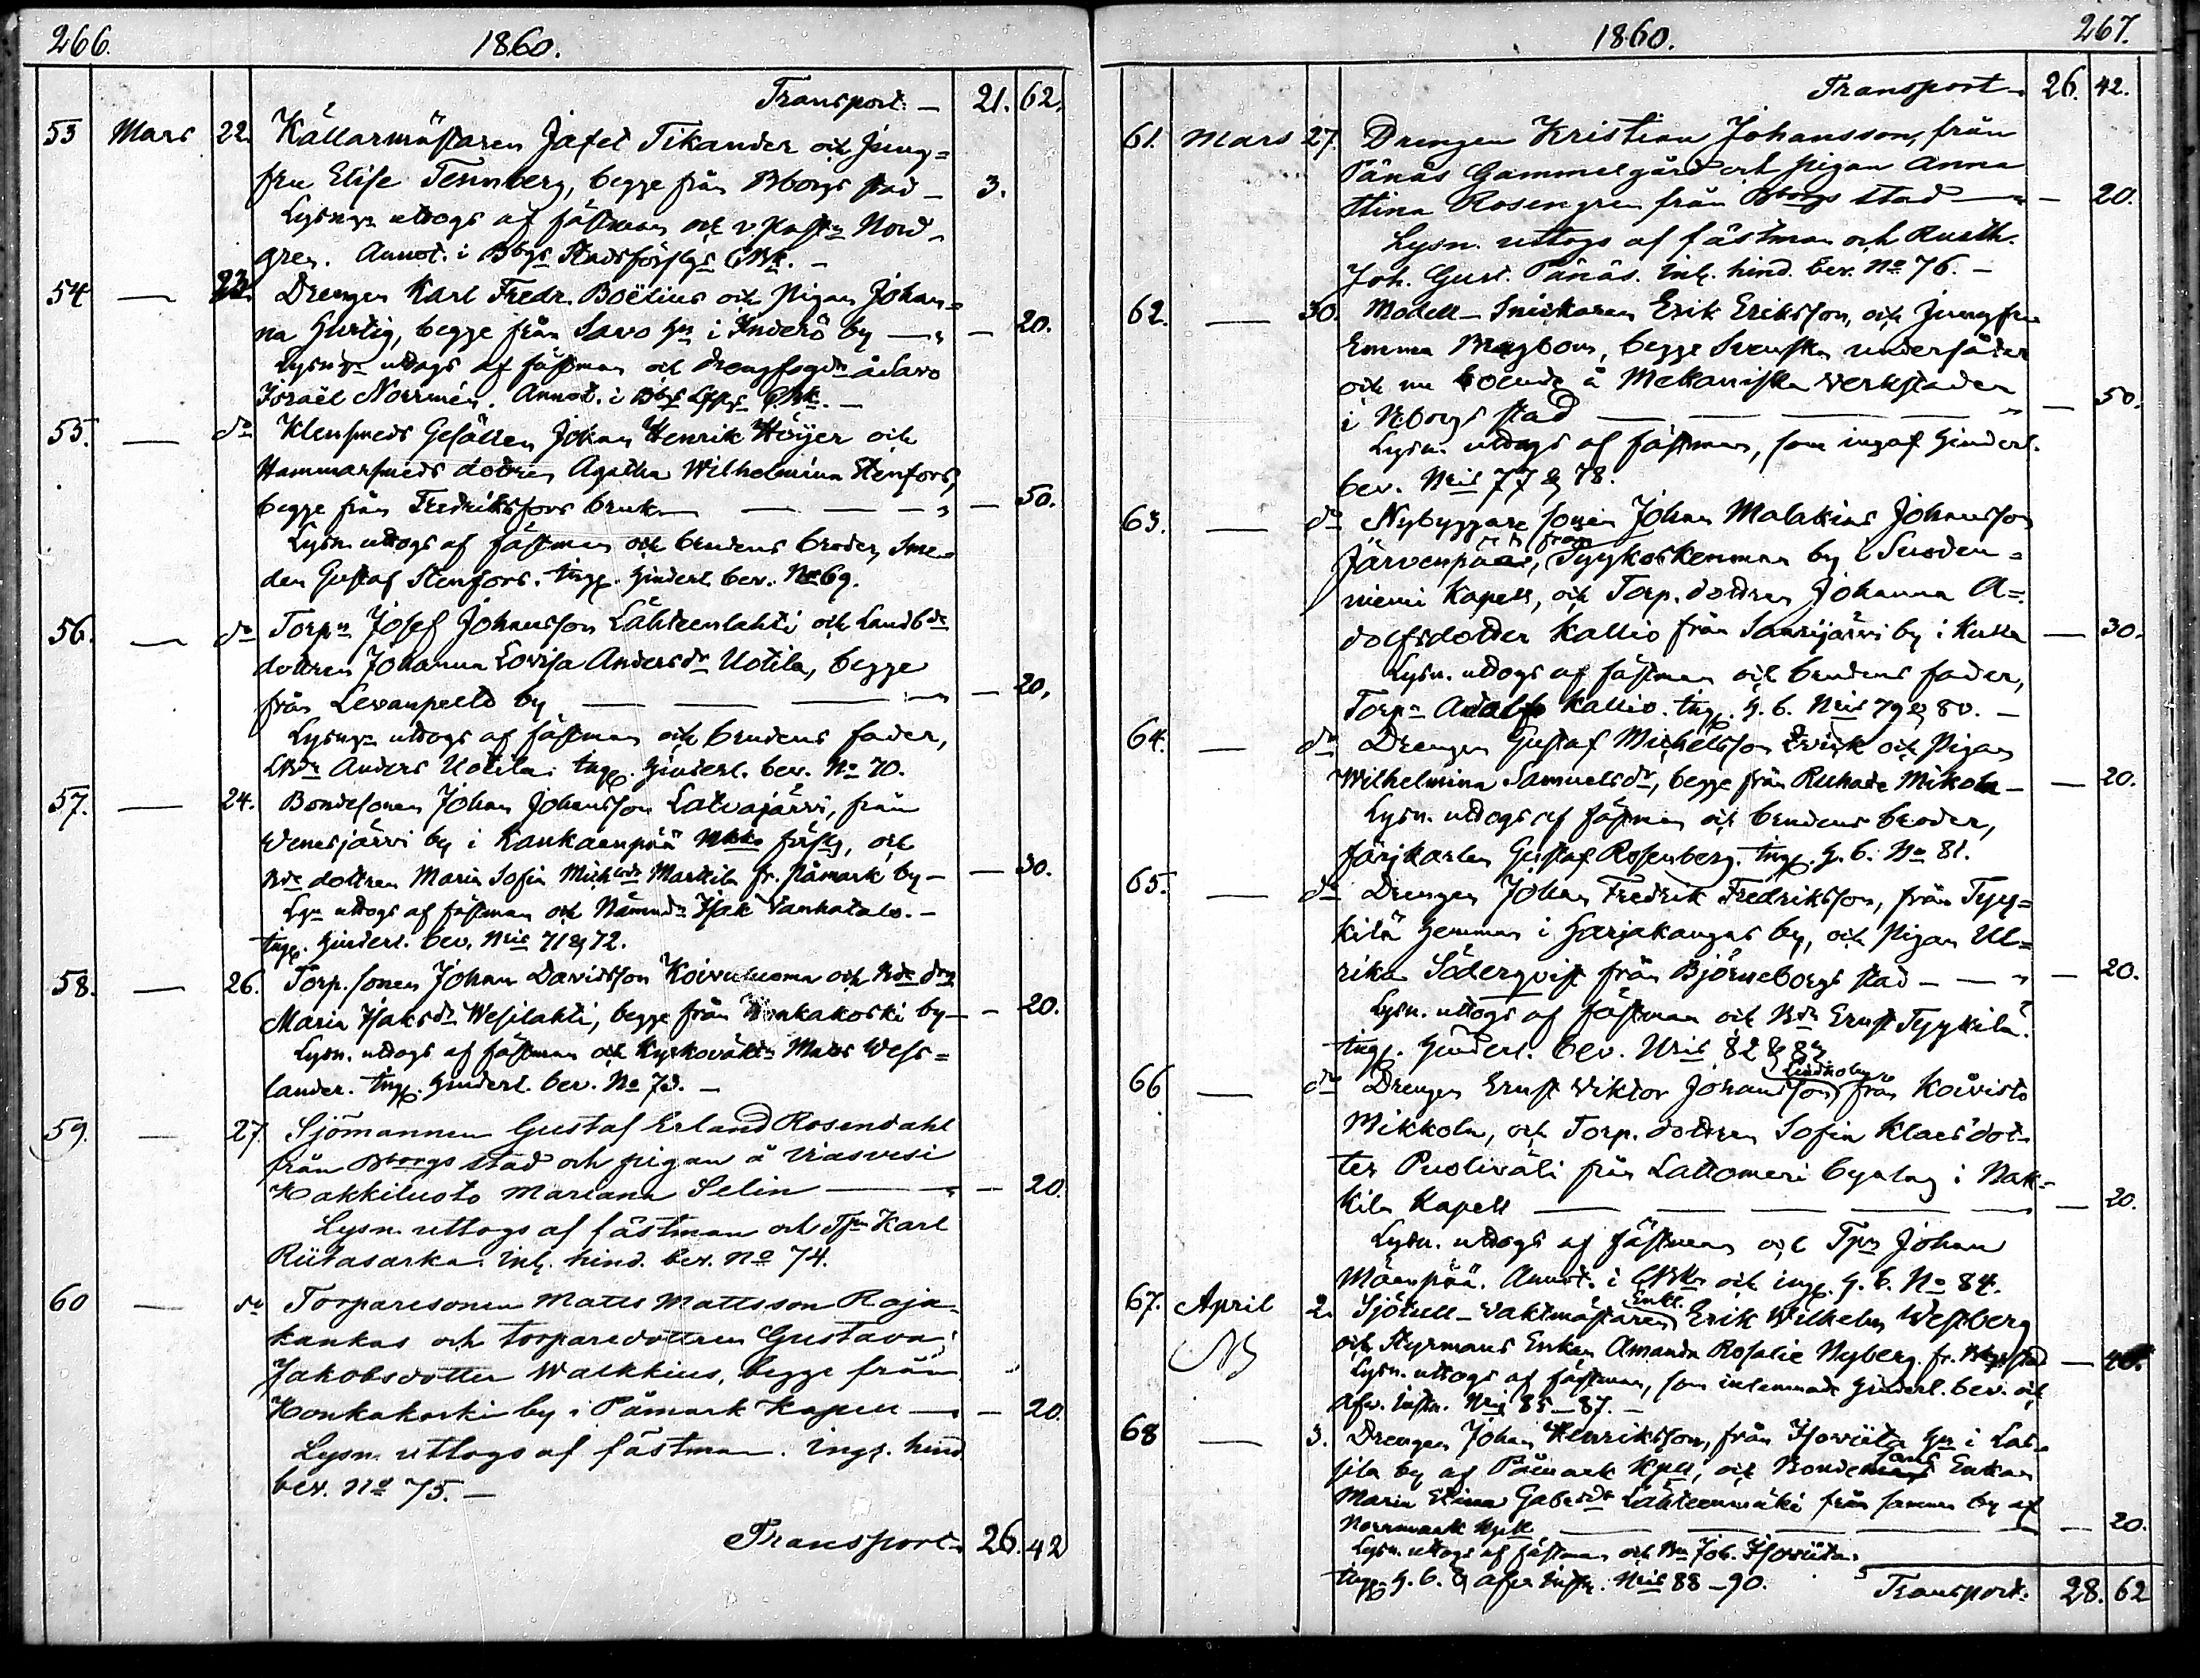 266. 1860.
Transport. — 21. 62.
53 Mars 22. Källarmästaren Jafet Tikander och Jung=
fru Elise Tennberg, begge från Bborgs stad — 3.
Lysngn uttogs af fästman och v. Nord-
gren. Annot. i Bbgs Stadsförslgs CBk. —
54 — 23. Drengen Karl Fredr. Boëlius och pigan Johan=
na Hurtig, begge från Savo Hn i Inderö by — — 20.
Lysngn uttogs af fästman och drengfogdn å Savo
Israël Norrmén. Annot. i Bbgs CBk. —
55. — do Klensmeds Gesällen Johan Henrik Höijer och
Hammarsmeds dottren Agatha Wilhelmina Stenfors,
begge från Fredriksfors bruk — — — — 50.
Lysn. uttogs af fästman och brudens broder, Sme-
den Gustaf Stenfors. Ingg. Hinderl. bev. No 69.
56. — do Torpn Josef Johansson Lähteenlahti och Landbde
dottren Johanna Lovisa Andersdr Uotila, begge
från Levanpelto by — — — — 20.
Lysngn uttogs af fästman och brudens fader,
LBdn Anders Uotila. Ingg. Hinderl. bev. No 70.
57. — 24. Bondesonen Johan Johansson Latvajärvi, från
Wenesjärvi by i Kankaanpää förslg, och
Bde dottren Maria Sofia Michlsdr Markila fr. Påmark by — — 30.
Lgn uttogs af fästman och Nämndn Isak Vanhatalo. —
Ingg. Hinderl. bev. Nris 71 & 72.
58. — 26. Torp. sonen Johan Davidsson Koivuluoma och Bde
Maria Isaksdr Wesilahti, begge från Honkakoski by — — 20.
Lysn. uttogs af fästman och Kyrkoväktn Matts Wess=
lander. Ingg. Hinderl. bev. No 73. —
59. — 27 Sjömannen Gustaf Erland Rosendahl
från Bborgs stad och pigan å Viasvesi
Kakkiluoto Mariana Selin — — 20.
Lysn. uttogs af fästman och Tpn Karl
Riitasarka. Inl. hind. bev. No 74.
60 — do Torparesonen Matts Mattsson Raja-
kankas och torparedottren Gustava
Jakobsdotter Walkkius, begge från
Honkakoski by i Påmark Kapell — — 20
Lysn. uttogs af fästman. Ingg. hind.
bev. No 75. —
Transport — 26. 42
1860. 267.
Transport — 26. 42.
61. Mars 27. Drengen Kristian Johansson, från
Pänäs Gammelgård och pigan Anna
Stina Rosengren från Bborgs stad — — 20.
Lysn. uttogs af fästman och Rusth.
Joh. Gust. Pänäs. Inl. hind. bev. No 76. —
62. — 30. Modell-Snickaren Erik Eriksson, och Jungfru
Emma Bragbom, begge Svenska undersåter
och nu boende å Mekaniska verkstaden
i Bborgs stad — — — — 50.
Lysn. uttogs af fästman, som ingaf Hinderl.
bev. Nris 77 & 78.
63. — do Nybyggare sonen Johan Malakias Johansson
Järvenpää, från Tyykoskenmaa by i Suoden-
niemi Kapell, och Torp. dottren Johanna A=
dolfsdotter Kallio från Saarijärvi by i Kulla — 30.
Lysn. uttogs af fästman och brudens fader,
Torpn Adolf Kallio. Ingg. H. b. Nris 79 & 80. —
64. — do Drengen Gustaf Michelsson och Pigan
Wilhelmina Samuelsdr, begge från Ruhade Mikola — — 20.
Lysn. uttogs af fästman och brudens broder,
färjkarlen Gustaf Rosenberg. Ingg. H. b. No 81.
65. — do Drengen Johan Fredrik Fredriksson, från Tyy=
kilä Hemman i Harjakangas by, och Pigan Ul=
rika Söderqvist från Björneborgs stad — — — 20.
Lysn. uttogs af fästman och Bdn Ernst Tyykilä.
Ingg. Hinderl. bev. Nris 82 & 83.
66 — do Drengen Ernst Viktor Johansson från Koivisto
Mikkola, och Torp. dottren Sofia Klaesdot-
ter Puoliväli från Lattomeri bynlag i Nak-
kila Kapell — — — — 20.
Lysn. uttogs af fästman och Tpn Johan
Mäenpää. Annot. i CBkn och ingg. H. b. No 84.
67. April 2. Sjötull-Vaktmästaren Enkl. Erik Wilhelm Westberg
NB och Styrmans Enkan Amanda Rosalie Nyberg fr. Bbgs stad —
Lysn. uttogs af fästman, som inlemnade Hinderl. bev. och
Afv. instr. Nris 85–87. —
68 — 3. Drengen Johan Henriksson, från Isoviita Hn i Las-
sila by af Påmark Kpll, och Bonde Enkan
Maria Stina Gabrsdr Lähteenmäki från samma by af
Norrmark Kpll — — — — 20.
Lysn. uttogs af fästman och Bn Joh. Isoviita.
Ingg. H. b. & afv. instr. Nris 88–90. Transport. 28. 62